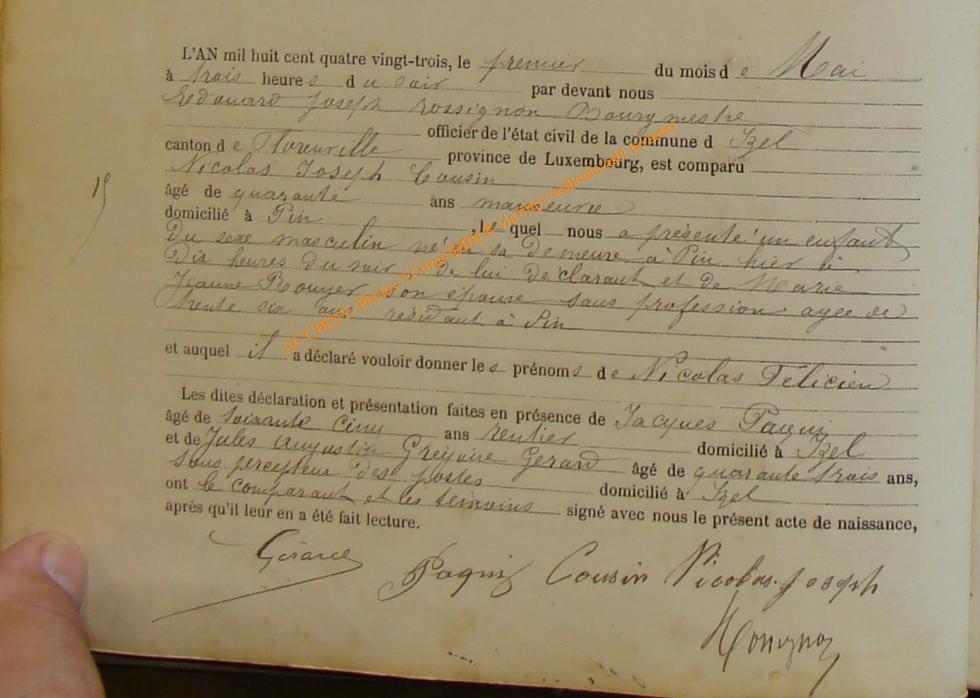 L'AN mil huit cent quatre vingt-trois, le premier du mois de Mai
à trois heures du soir par devant nous
Edouard Joseph Rossignon Bourgmestre
officier de l'état civil de la commune d Izel
canton de Florenville province de Luxembourg, est comparu
Nicolas Joseph Cousin
âgé de quarante ans manoeuvre
domicilié à Pin , le quel nous a présenté un enfant
15
du sexe masculin né en sa demeure à Pin hier à
dix heures du soir de lui declarant et de Marie
Jeanne Rouyer son épouse sans profession agée de
trente six ans résidant à Pin
et auquel il a déclaré vouloir donner les prénoms de Nicolas Félicien
Les dites déclaration et présentation faites en présence de Jacques Paquis
âgé de soixante cinq ans rentier domicilié à Izel
et de Jules Augustin Grégoire Gerard âgé de quarante trois ans,
sous percepteur des postes domicilié à Izel
ont le comparant et les témoins signé avec nous le présent acte de naissance,
après qu'il leur en a été fait lecture.
Gérard
Paquis Cousin Nicolas Joseph
Rossignon